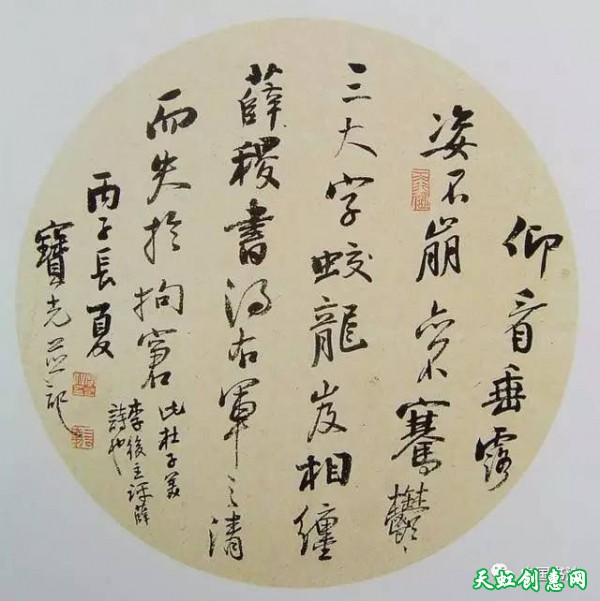 仰看垂露
姿不崩亦不騫鬱〻
三大字蛟龍岌相纏
薛稷書得右軍之清
而失於拘窘
此杜子美
李後主評薛
詩也
丙子長夏
寶光並記
天虹创惠网